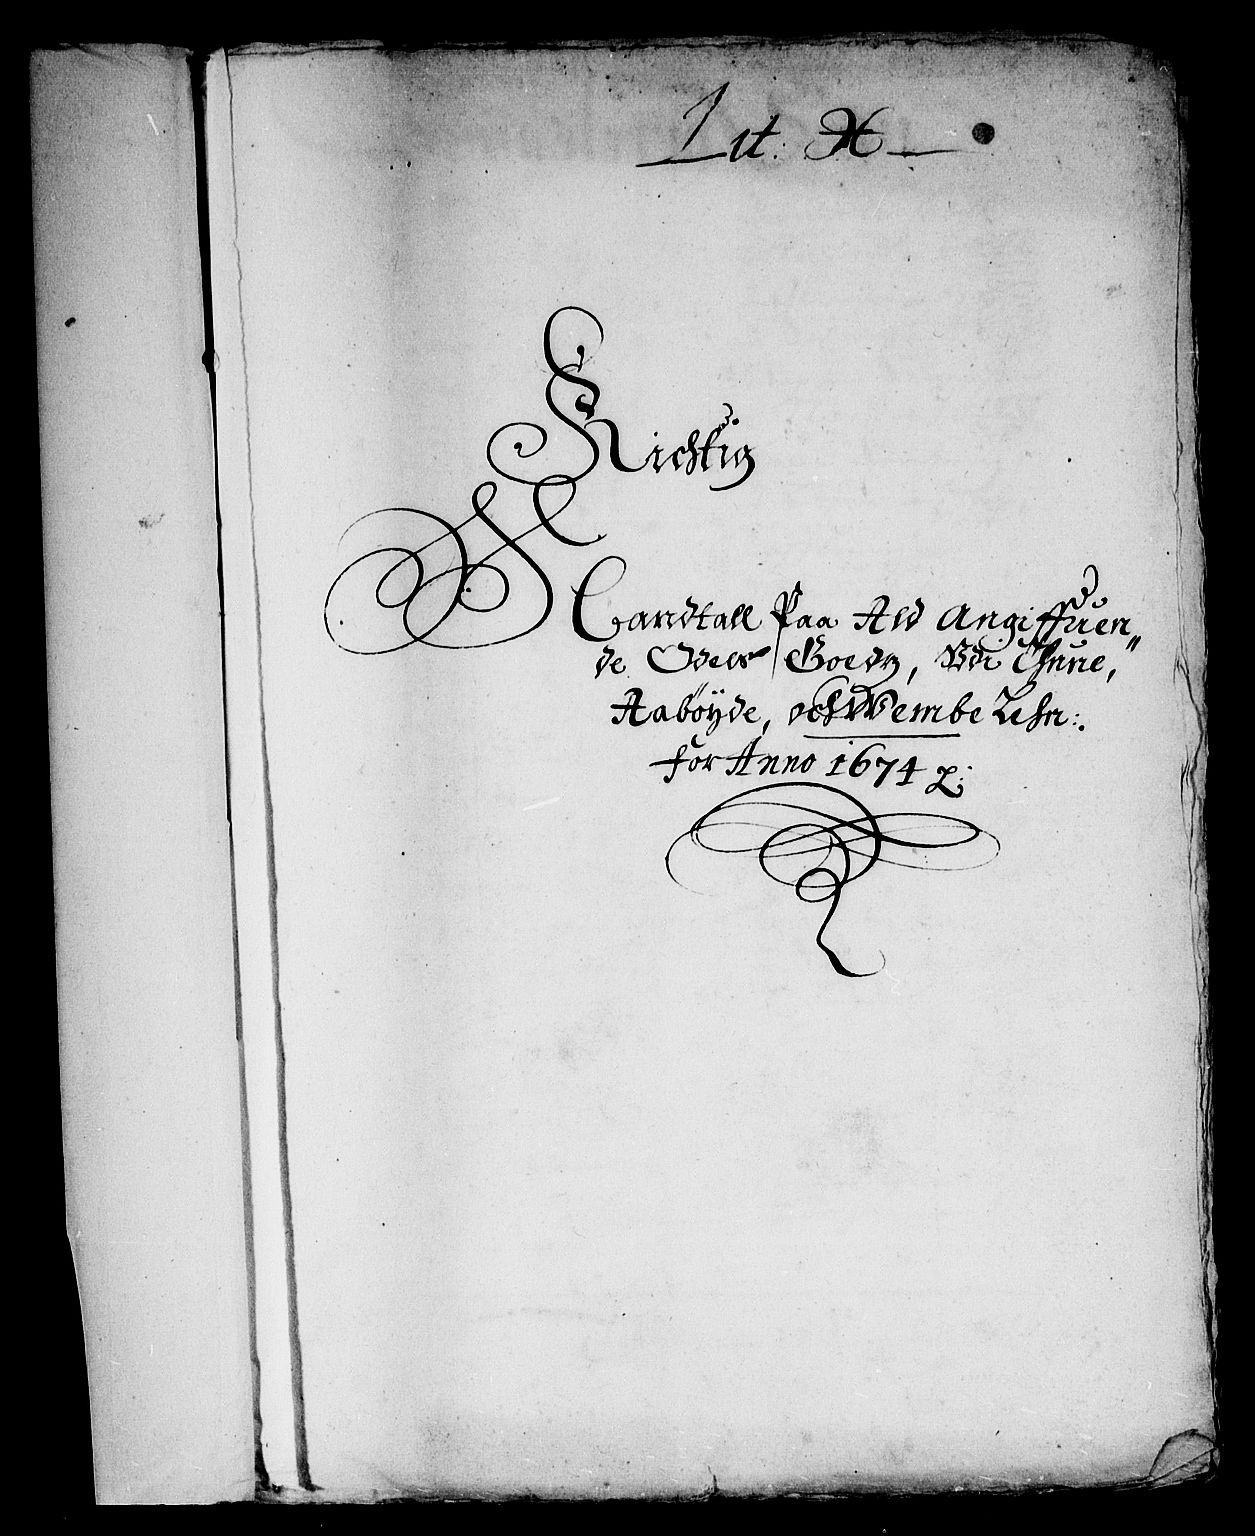 Lit: H
Richtig
Mandtall Paa Ald Angiffuen
de Odels Goedz, Vdi Thune,
Aabøyde, och Wembe Lehn:
for Anno 1674